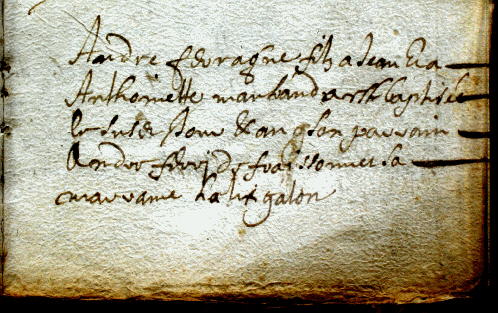 Andre fevragne filz a Jean & a
Anthoinette marchand a esté baptisé
le susd jour & an son parrain
Andre fraissonnet sa
marraine galon